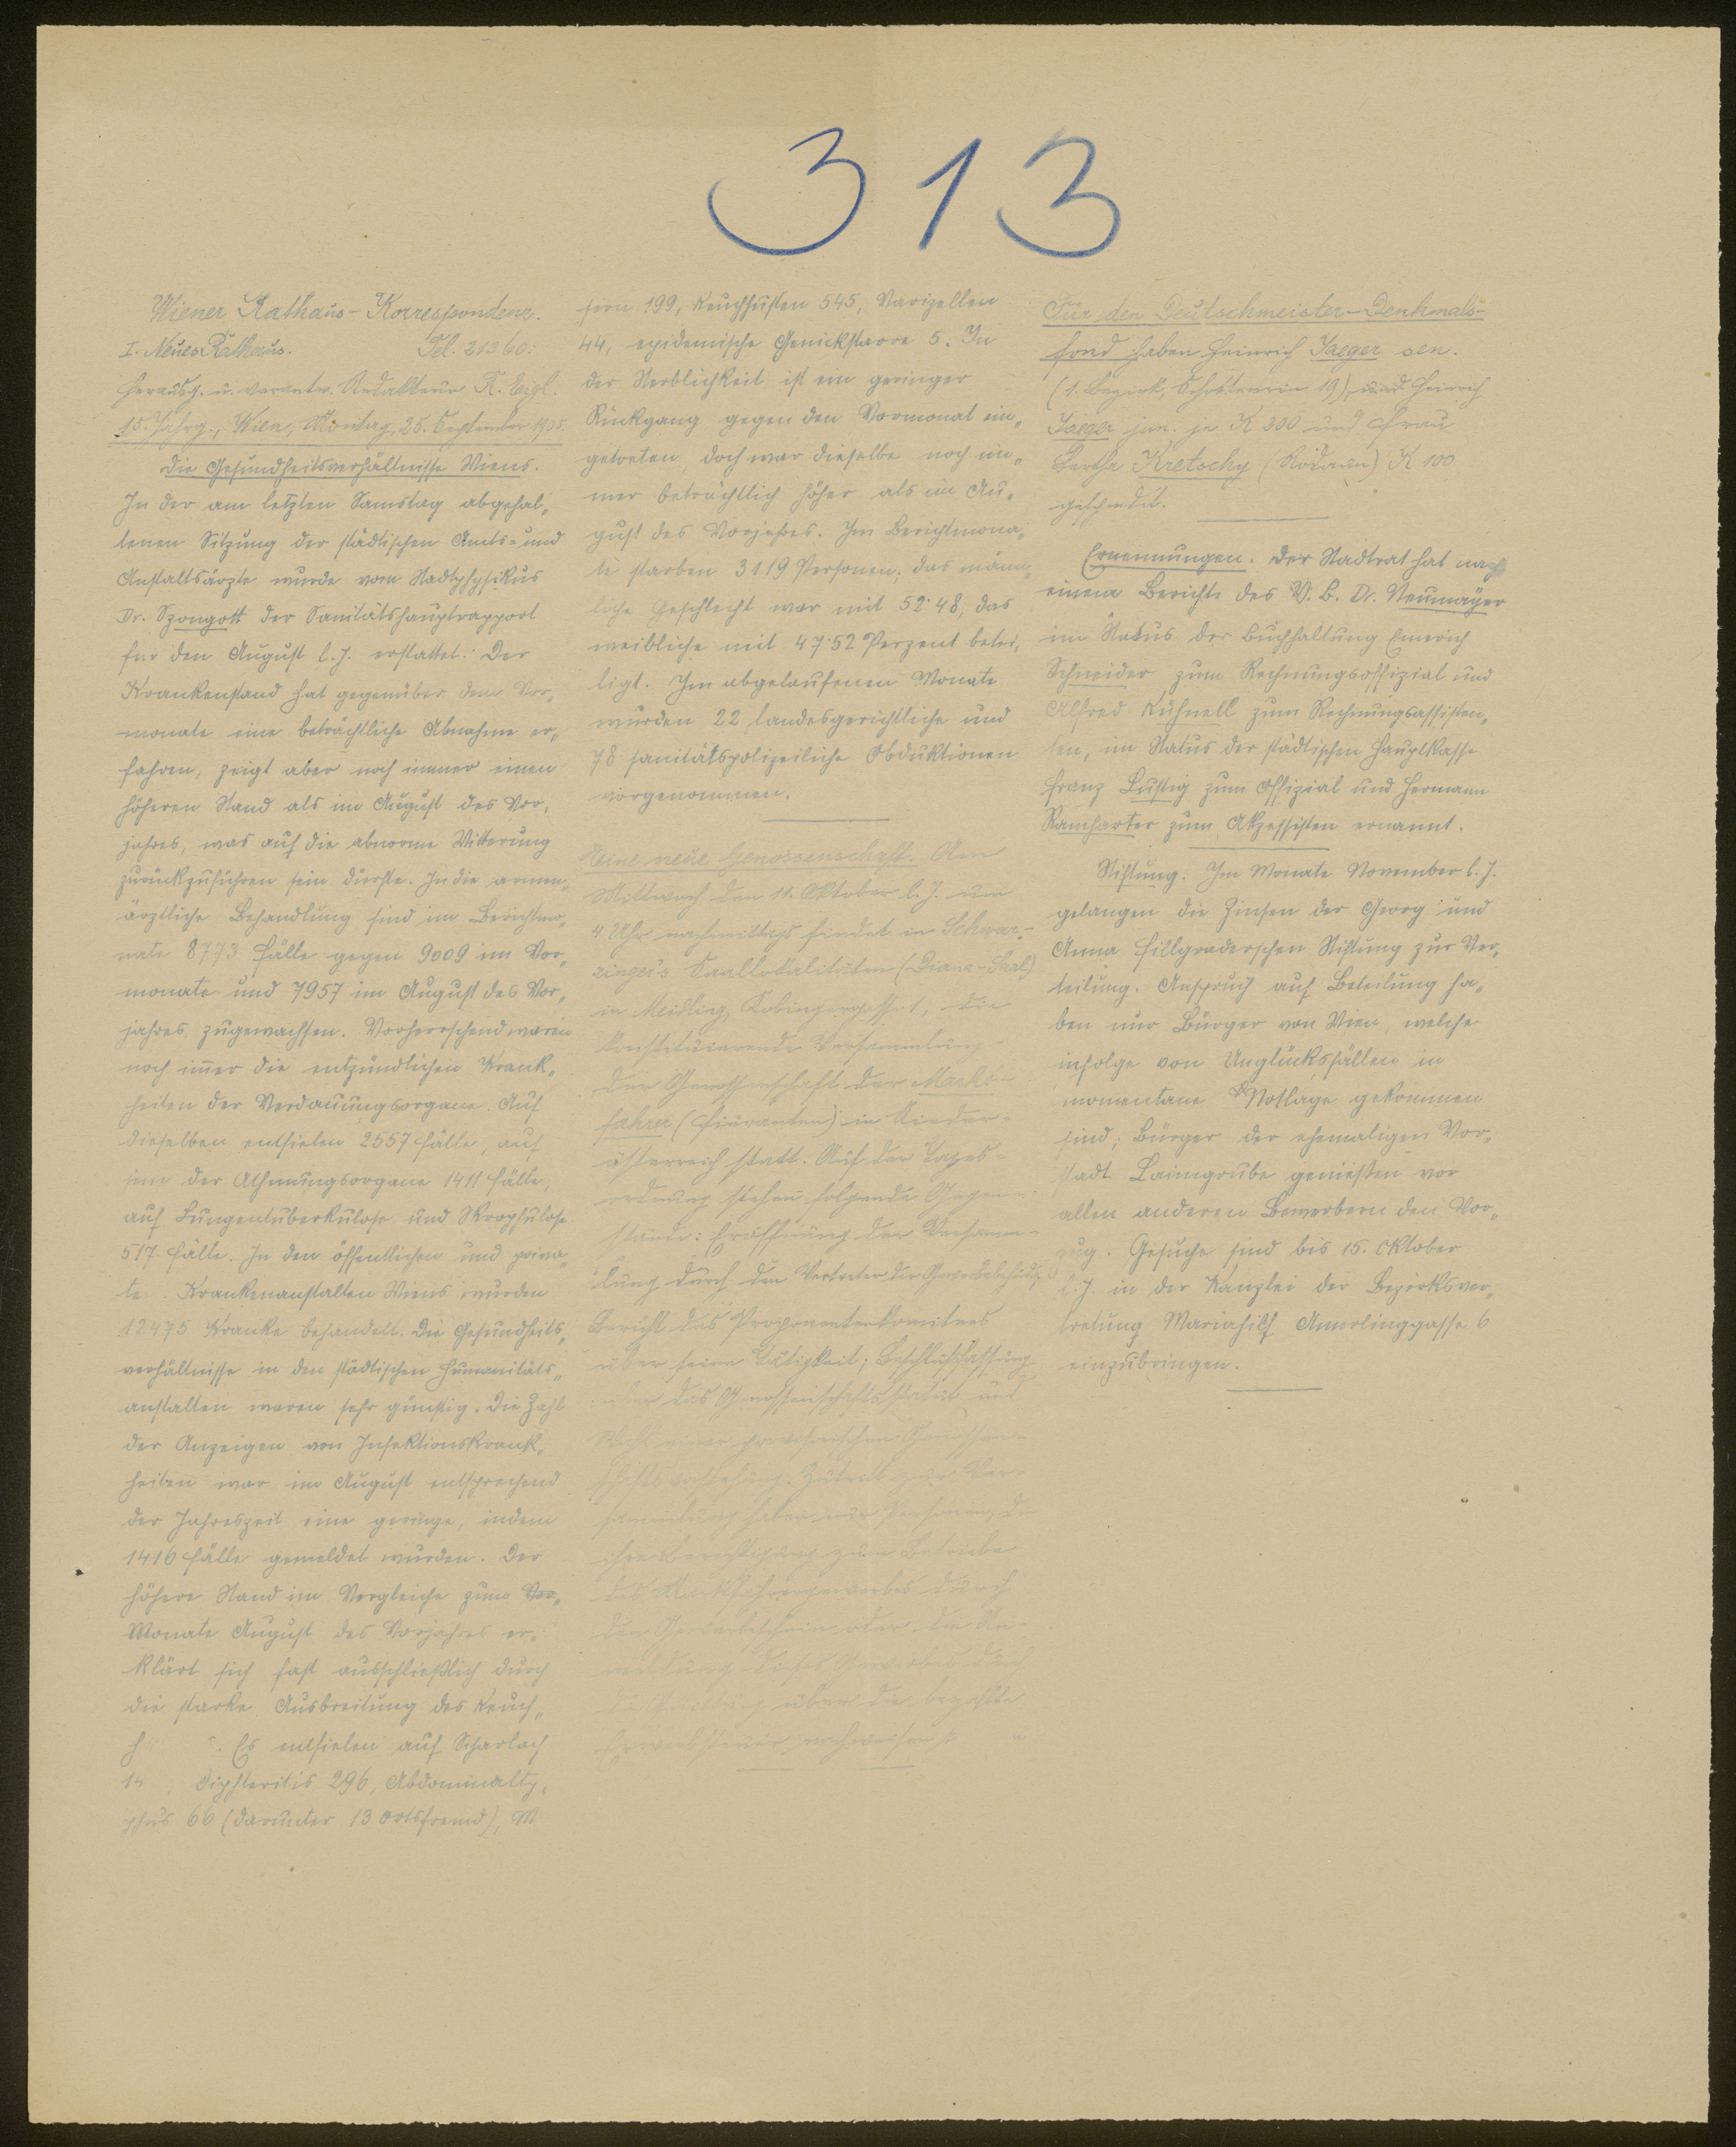 313
Wiener Rathaus-Korrespondenz.
I. Neues Rathaus. Tel. 21360.
Herausg. u. verantw. Redakteur R. Eigl.
15. Jahrg., Wien, Montag, 25. September 1905.
Die Gesundheitsverhältnisse Wiens.
In der am letzten Samstag abgehal„
tenen Sitzung der städtischen Amts- und
Anstaltsärzte wurde vom Stadtphysikus
Dr. Szongott der Sanitätshauptrapport
für den August l. J. erstattet: Der
Krankenstand hat gegenüber dem Vor„
monate eine beträchtliche Abnahme er„
fahren, zeigt aber noch immer einen
höheren Stand als im August des Vor„
jahres, was auf die abnorme Witterung
zurückzuführen sein dürfte. In die armen„
ärztliche Behandlung sind im Berichtmo„
nate 8793 Fälle gegen 9009 im Vor„
monate und 7957 im August des Vor„
jahres zugewachsen. Vorherrschend waren
noch immer die entzündlichen Krank„
heiten der Verdauungsorgane. Auf
dieselben entfielen 2557 Fälle, auf
jene der Athmungsorgane 1411 Fälle,
auf Lungentuberkulose und Skrophulose
517 Fälle. In den öffentlichen und priva„
ten Krankenanstalten Wiens wurden
12475 Kranke behandelt. Die Gesundheits„
verhältnisse in den städtischen Humanitäts„
anstalten waren sehr günstig. Die Zahl
der Anzeigen von Infektionskrank„
heiten war im August entsprechend
der Jahreszeit eine geringe, indem
1416 Fälle gemeldet wurden. Der
höhere Stand im Vergleiche zum Vor„
Monate August des Vorjahres er„
klärt sich fast ausschließlich durch
die starke Ausbreitung des Keuch„
h. Es entfielen auf Scharlach
14, Diphteritis 296, Abdominalty„
phus 66 (darunter 13 Ortsfremd), M
sern 199, Keuchhusten 545, Varizellen
44, epidemische Genickstarre 5. In
der Sterblichkeit ist ein geringer
Rückgang gegen den Vormonat ein„
getreten, doch war dieselbe noch im„
mer beträchtlich höher als im Au„
gust des Vorjahres. Im Berichtmona„
te starben 3119 Personen; das männ„
liche Geschlecht war mit 52·48, das
weibliche mit 47·52 Perzent betei„
ligt. Im abgelaufenen Monate
wurden 22 landesgerichtliche und
78 sanitätspolizeiliche Obduktionen
vorgenommen.
Eine neue Genossenschaft. Am
Mittwoch den 11. Oktober l. J. um
4 Uhr nachmittags findet in Schwar-
zinger's Saallokalitäten (Diana-Saal)
in Meidling, Tobingergasse 1, die
konstituierende Versammlung
der Genossenschaft der Markt-
fahrer (Fieranten) in Nieder-
österreich statt. Auf der Tages-
ordnung stehen folgende Gegen-
stände: Eröffnung der Versamm-
lung durch den Vertreter der Gewerbebehörde;
Bericht des Proponentenkomitees
über seine Tätigkeit; Beschlußfassung
über das Genossenschaftsstatut und
Wahl einer provisorischen Genossen-
schaftsvorstehung. Zutritt zur Ver-
sammlung haben nur Personen, die
ihre Berechtigung zum Betriebe
des Marktfahrergewerbes durch
den Gewerbeschein oder die An-
meldung dieses Gewerbes durch
die Quittung über die bezahlte
Erwerbsteuer nachweisen
Für den Deutschmeister-Denkmals-
fond haben Heinrich Jaeger sen.
(1. Bezirk, Schottenring 19) und Heinrich
Jaeger jun. je K 200 und Frau
Berthe Kretschy (Rodaun) K 100
gespendet.
Ernennungen. Der Stadtrat hat nach
einem Berichte des V. B. Dr. Neumayer
im Status der Buchhaltung Emerich
Schneider zum Rechnungsoffizial und
Alfred Kühnell zum Rechnungsassisten„
ten, im Status der städtischen Hauptkasse
Franz Lustig zum Offizial und Hermann
Ramharter zum Akzessisten ernannt.
Stiftung. Im Monate November l. J.
gelangen die Zinsen der Georg und
Anna Fillgraderschen Stiftung zur Ver„
teilung. Anspruch auf Beteilung ha„
ben nur Bürger von Wien, welche
infolge von Unglücksfällen in
momentane Notlage gekommen
sind; Bürger der ehemaligen Vor„
stadt Laimgrube genießen vor
allen anderen Bewerbern den Vor„
zug. Gesuche sind bis 15. Oktober
l. J. in der Kanzlei der Bezirksver„
tretung Mariahilf Amerlinggasse 6
einzubringen.